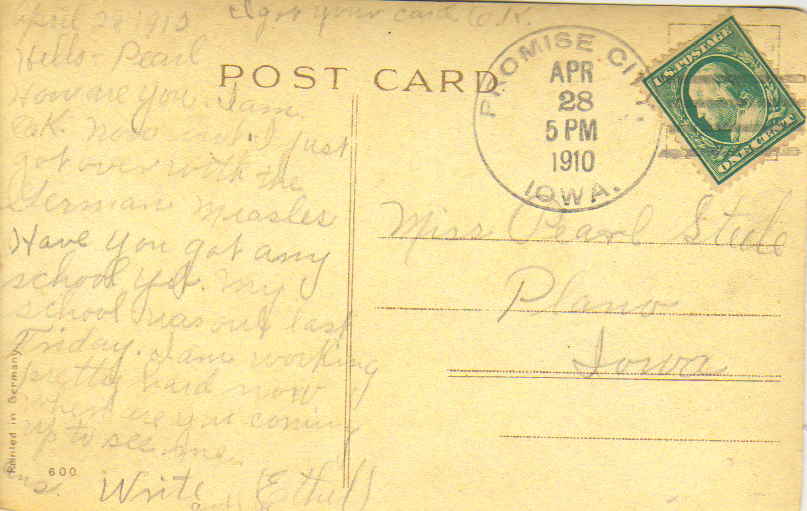 April 28 1910
I got your card O.K.
Hello Pearl
How are you. I am
O.K. now and I just
got over with the
German Measles
Have you got any
school yet. My
school was out last
Friday. I am working
pretty hard now
when are you coming
up to see me.
ans. Write (Ethel)
POST CARD
PROMISE CITY
APR
28
5 PM
1910
IOWA.
U.S. POSTAGE
ONE CENT
Miss Pearl
Plano
Iowa
Printed in Germany
600